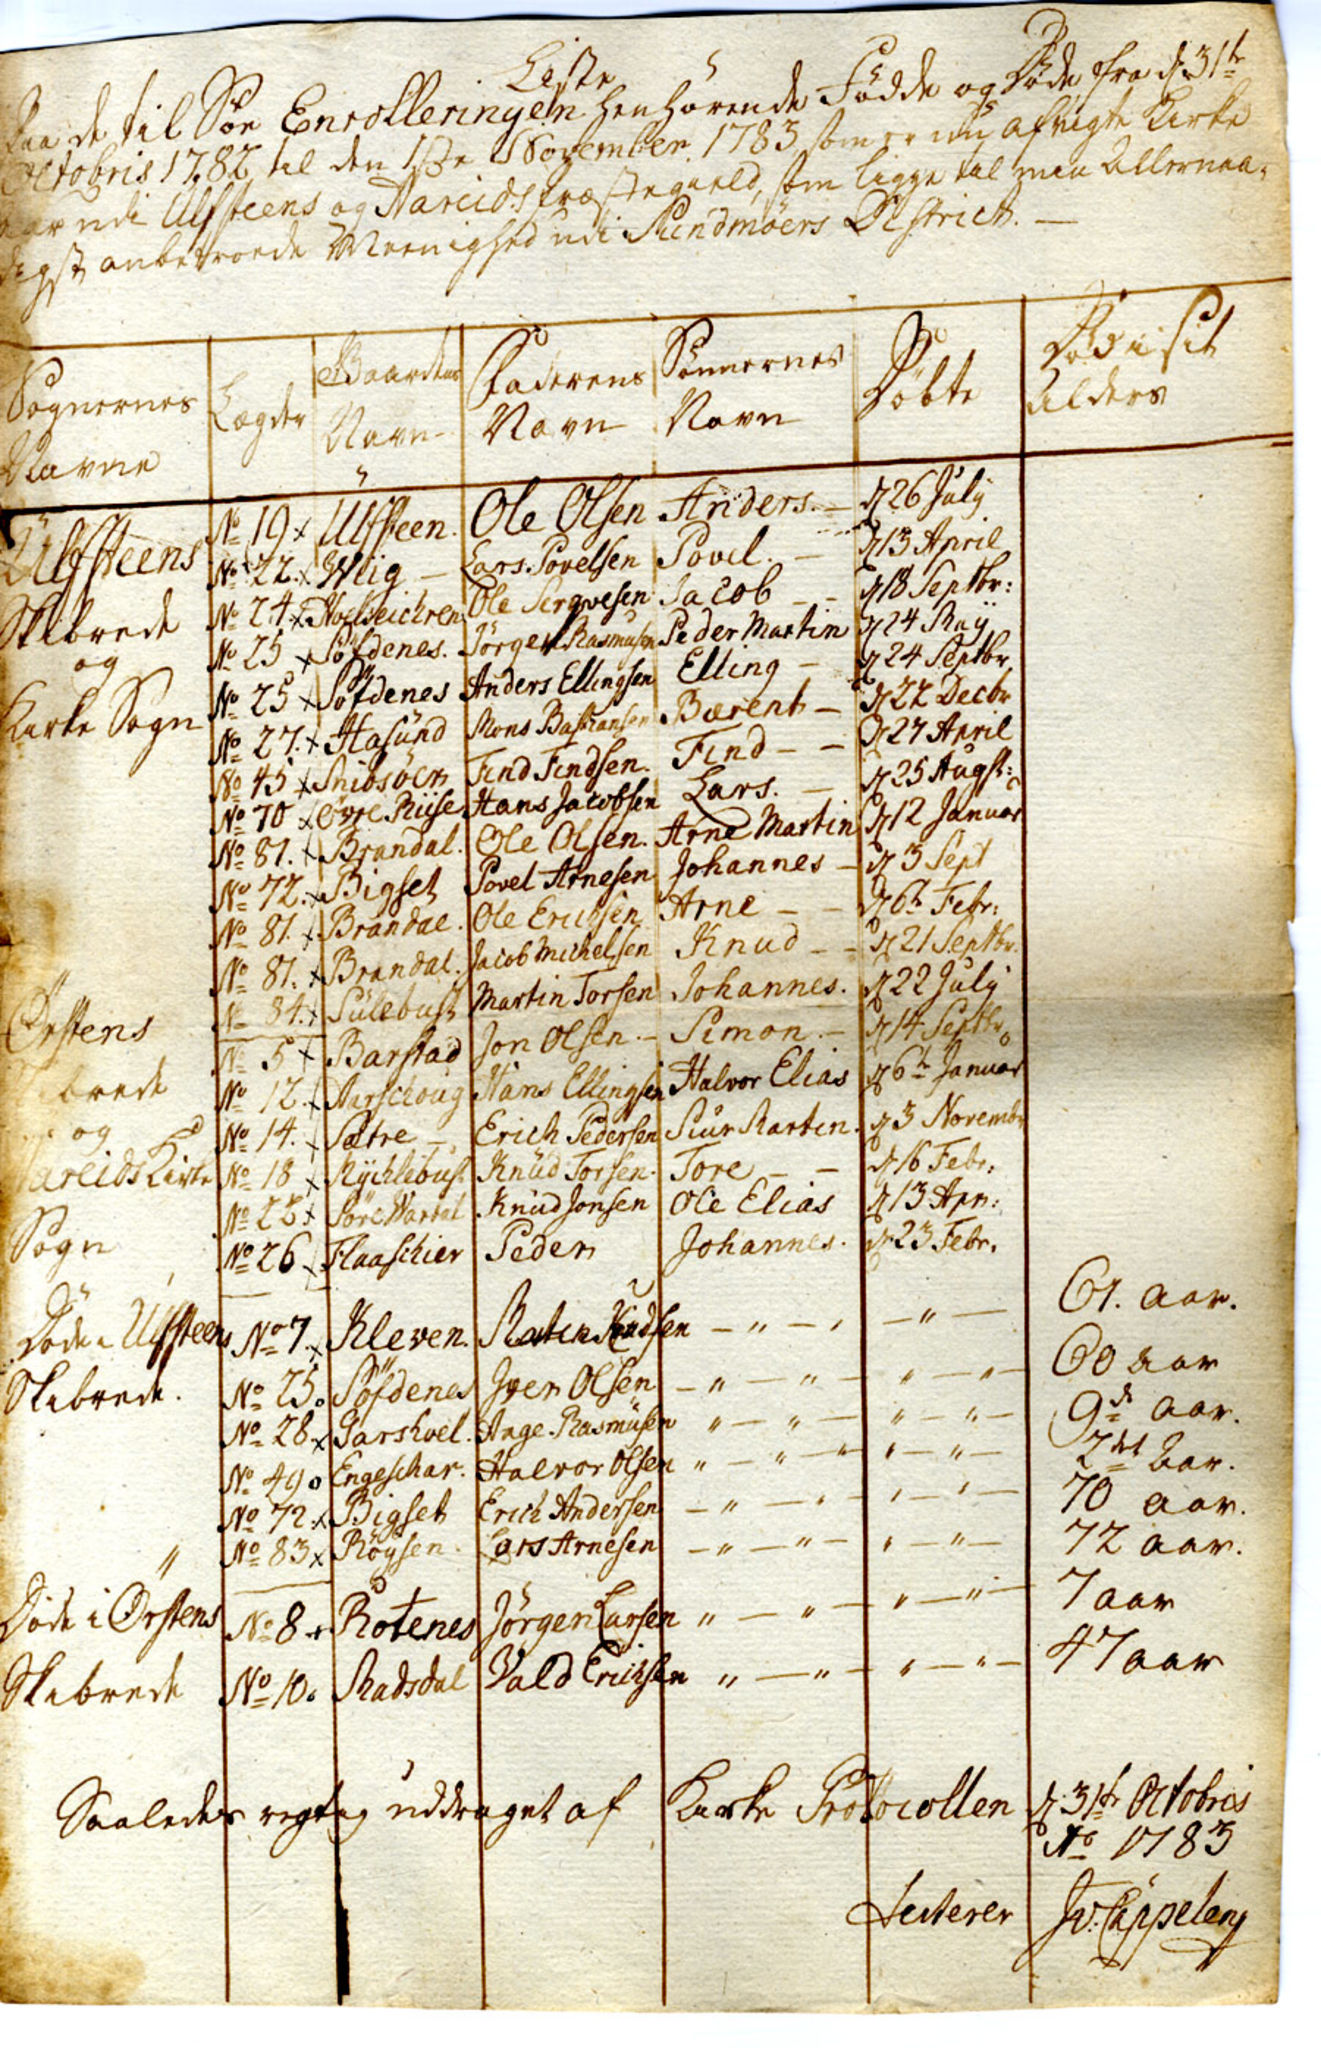 Liste
Paa de til Søe Enrolleringen henhørende Fødde og Døde fra d: 31te
Octobris 1782 til den 1ste November 1783 som er nu afvigte Kirke
aar udi Ulfsteens og Hareids præstegield, som ligge til min Allernaa-
digst anbetroede Meenighed udi Sundmöers District. —
Sognernes Navne | Lægder | Gaardens Navn | Faderens Navn | Sönnernes Navn | Døbte | Död i sit Alders
Ulfsteens | No 19 x | Ulfsteen | Ole Olsen | Anders. — | d 26 July
No 22. x | Wiig — | Lars Povelsen | Povel. — | d 13 April
Skibrede | No 24 x | Ole | Jacob — — | d 18 Septbr:
og | No 25 x | Söfdenes. | Jörgen Rasmusen | Peder Martin | d 24 Maÿ
No 25 x | Söfdenes | Anders Ellingsen | Elling — | d 24 Septbr
Kirke Sogn | No 27. x | Hasünd | Mons Bastiansen | Bærent — | d 22 Decbr
No 45 x | Snibsöer | Find Findsen. | Find — — | d 27 April
No 70 x | Övre Riise | Hans Jacobsen | Lars. — | d 25 Augst:
No 81. x | Brandal. | Ole Olsen. | Arne Martin | d 12 Januar
No 72. x | Bigset | Povel Arnesen | Johannes — | d 3 Sept
No 81. x | Brandal. | Ole Ericksen | Arne — — | d 6te Febr:
No 81. x | Brandal. | Jacob Michelsen | Knud — — | d 21 Septbr.
No 84. x | Sülebust | Martin Torsen | Johannes. | d 22 July
Ørstens | No 5 x | Barstad | Jon Olsen. — | Simon. — | d 14 Septbr
brede | No 12. x | Aarschoug | Hans Ellingsen | Halvor Elias | d 6te Januar
og | No 14. | Sætre — | Erich Pedersen | Siur Martin. | d 3 Novembr
Hareids Kirke | No 18 x | Rÿchlebust | Knüd Torsen. | Tore — — | d 16 Febr:
No 22 x | Söre Wartal | Knüd Jonsen | Ole Elias | d 13 Apr:
Sogn | No 26 x | Flaaschier | Peder | Johannes. | d 23 Febr.
Döde i Ulfsteens | No 7. x | Kleven. | Knudsen | — " — " — " — | 61. aar.
Skibrede. | No 25. o | Söfdenes | Iver Olsen | — " — " — " — " — | 60 aar
No 28 x | Garshoel. | Aage Rasmüsen | " — " — " — " — | 9de aar.
No 49 o | Engeschar. | Halvor Olsen | " — " — " — " — | 2det Aar.
No 72. x | Bigset | Erich Andersen | — " — " — " — " — | 70 aar.
No 83 x | Röysen. | Lars Arnesen | — " — " — " — " — | 72 aar.
Døde i Ørstens | No 8 x | Rotenes | Jörgen Larsen | " — " — " — " — | 7 aar
Skibrede | No 10. o | Radsdal | Vald Erichsen | " — " — " — " — | 47 aar
Saaledes rigtig uddraget af Kirke Protocollen d 31te Octobris
Ao 1783
Testerer J v: Cappelen